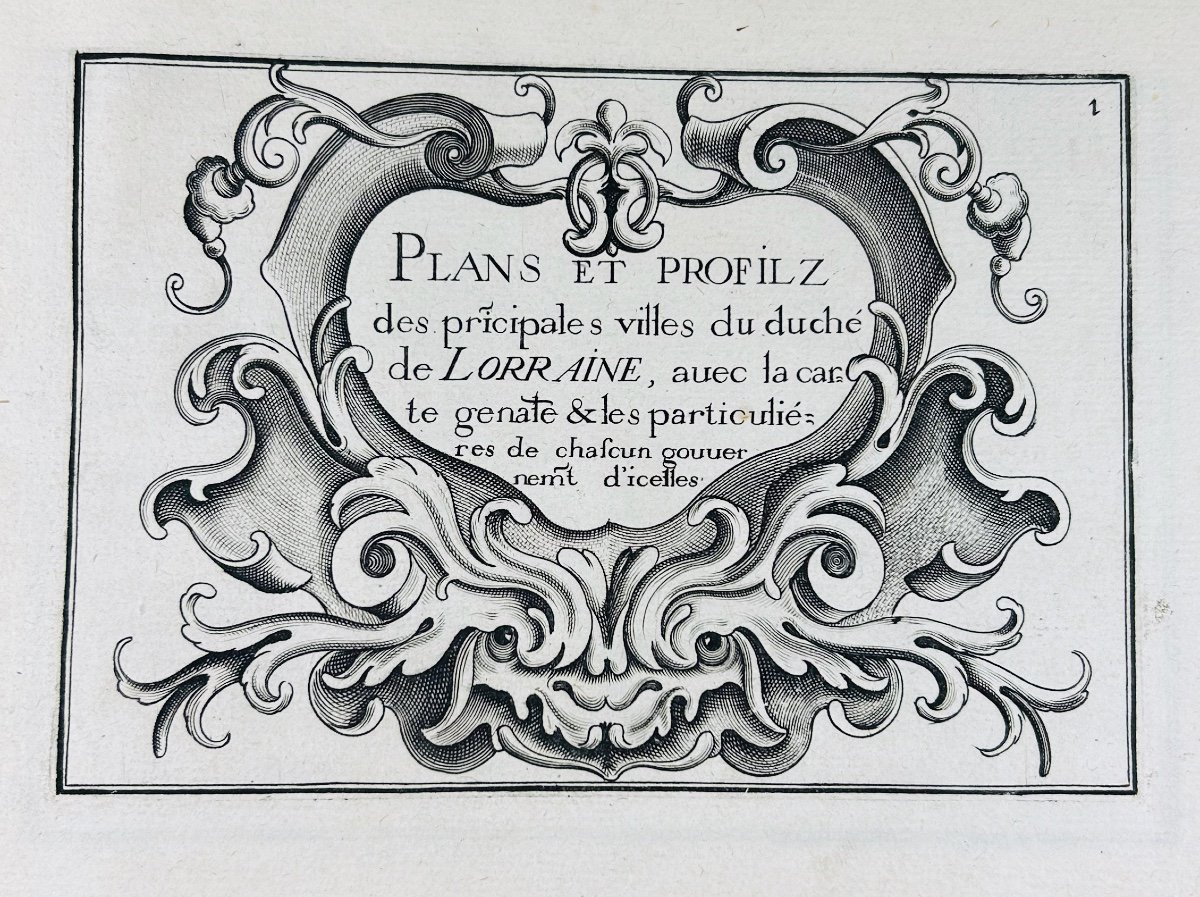 1
PLANS ET PROFILZ
des prĩcipales villes du duché
de LORRAINE, auec la car=
te genal̃e & les particulié=
res de chaſcun gouuer
nem̃t d'icelles.